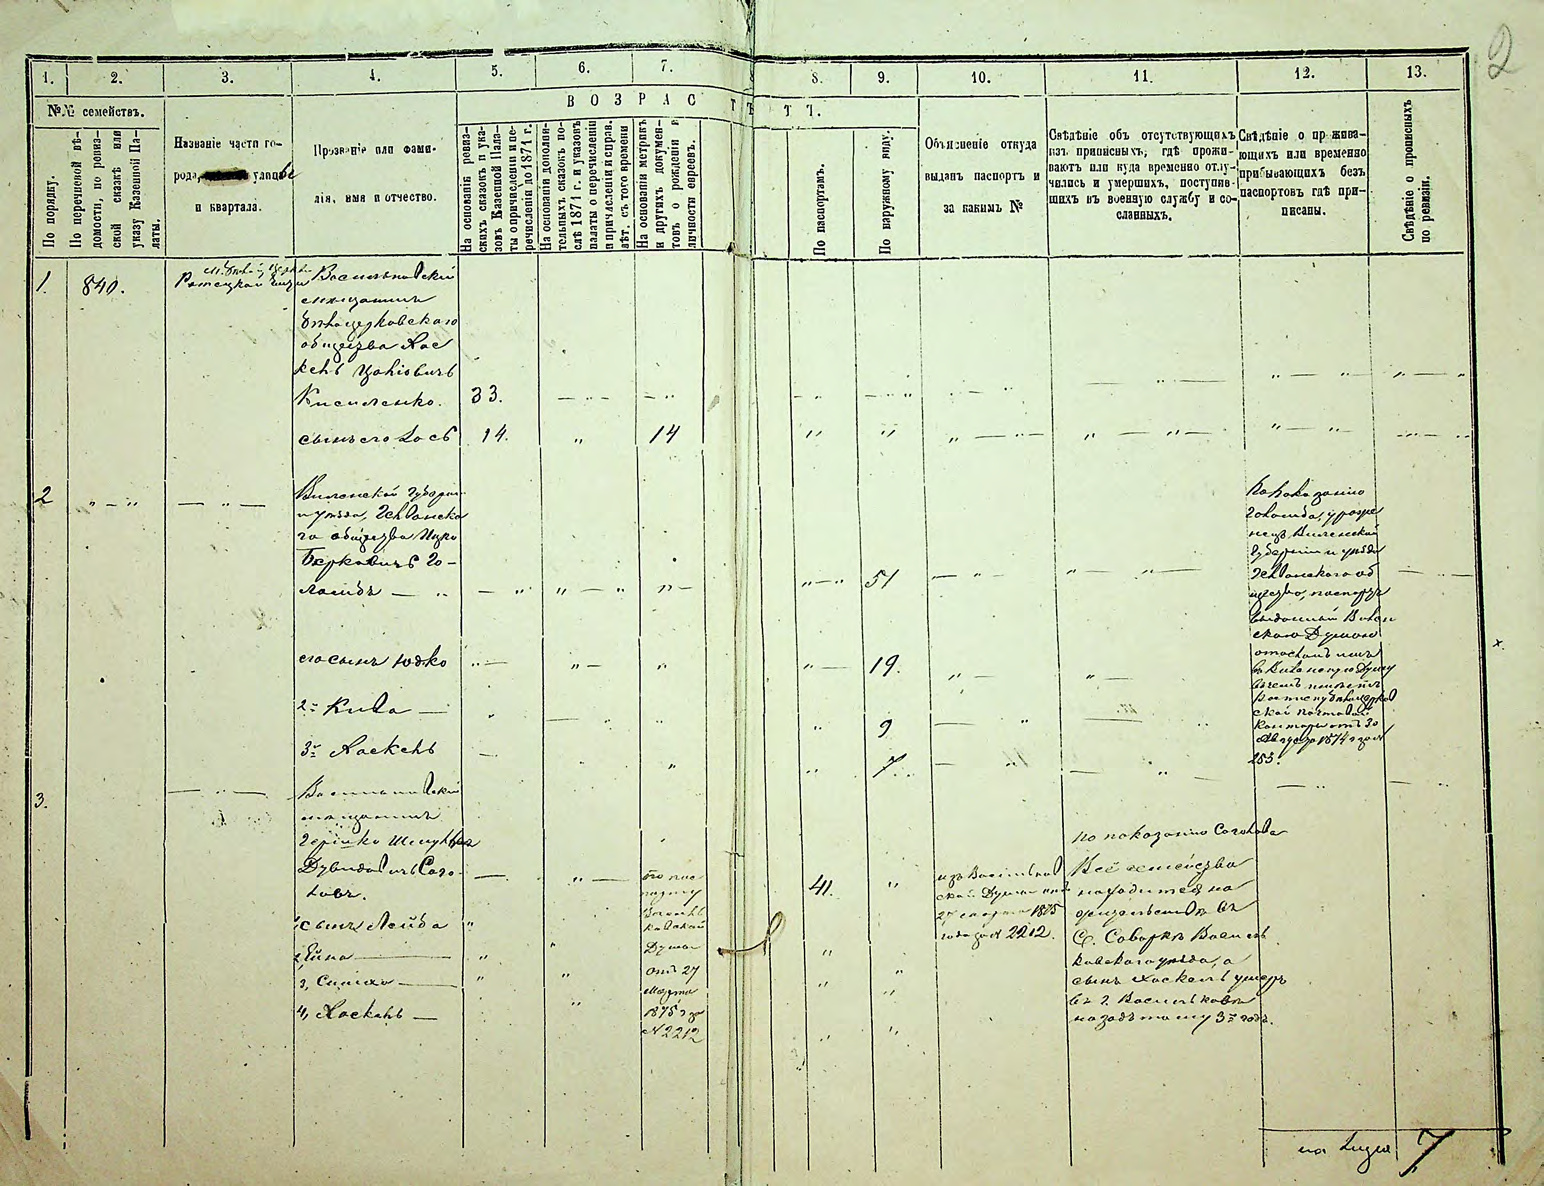 2
1. 2. 3. 4. 5. 6. 7. 8. 9. 10. 11. 12. 13.
№№ семействъ.
В О З Р А С Т Ъ
По порядку.
По перечневой вѣ-
домости, по ревиз-
ской сказкѣ или
указу Казенной Па-
латы.
Названіе части го-
рода, улицы
и квартала.
Прозваніе или фами-
лія, имя и отчество.
На основаніи ревиз-
скихъ сказокъ и ука-
зовъ Казенной Пала-
ты о причисленіи и пе-
речисленіи до 1871 г.
На основаніи дополни-
тельныхъ сказокъ по-
слѣ 1871 г. и указовъ
палаты о перечисленіи
и причисленіи и справ.
лѣт. съ того времени
На основаніи метрикъ
и другихъ докумен-
товъ о рожденіи и
личности евреевъ.
По паспортамъ.
По наружному виду.
Объясненіе откуда
выданъ паспортъ и
за какимъ №
Свѣдѣніе объ отсутствующихъ
изъ приписныхъ, гдѣ прожи-
ваютъ или куда временно отлу-
чились и умершихъ, поступив-
шихъ въ военную службу и со-
сланныхъ.
Свѣдѣніе о прожива-
ющихъ или временно
прибывающихъ безъ
паспортовъ гдѣ при-
писаны.
Свѣдѣніе о прописныхъ
по ревизіи.
1. 840.
Васильковскій
мѣщанинъ
бѣлоцерковскаго
общества Хас
кель
Кисиленко. 33.
сынъ его 14. 14
2
Виленской губерни
и уѣзда, Гелванска
го общества Ицко
Берковичъ Го-
ломбъ 51
его сынъ Юдко 19.
2й Кива 9
3й Хаскель 7
По показанію
Голомба, уроже
нецъ Виленской
губерніи и уѣзда
Гелванского об
щества, паспортъ
выданный Вилен
скою Думою
конторы отъ 30
Августа 1874 года
253.
3.
Васильковскій
мѣщанинъ
Гершко Шмул
Дувидовичъ Соло-
товъ. 41.
Василь
ковской
Думы
отъ 27
Марта
1875 г за
№ 2212
изъ Васильков
ской Думы отъ
27 марта 1875
года за № 2212.
По показанію
Всё семейство
находится на
жительствѣ въ
С. Саваркѣ Василь
ковского уѣзда, а
сынъ Хаскель умеръ
въ г. Васильковѣ
назадъ тому 3й годъ.
1, сынъ Лейба
2,
3,
4, Хаскель
на лицо 7